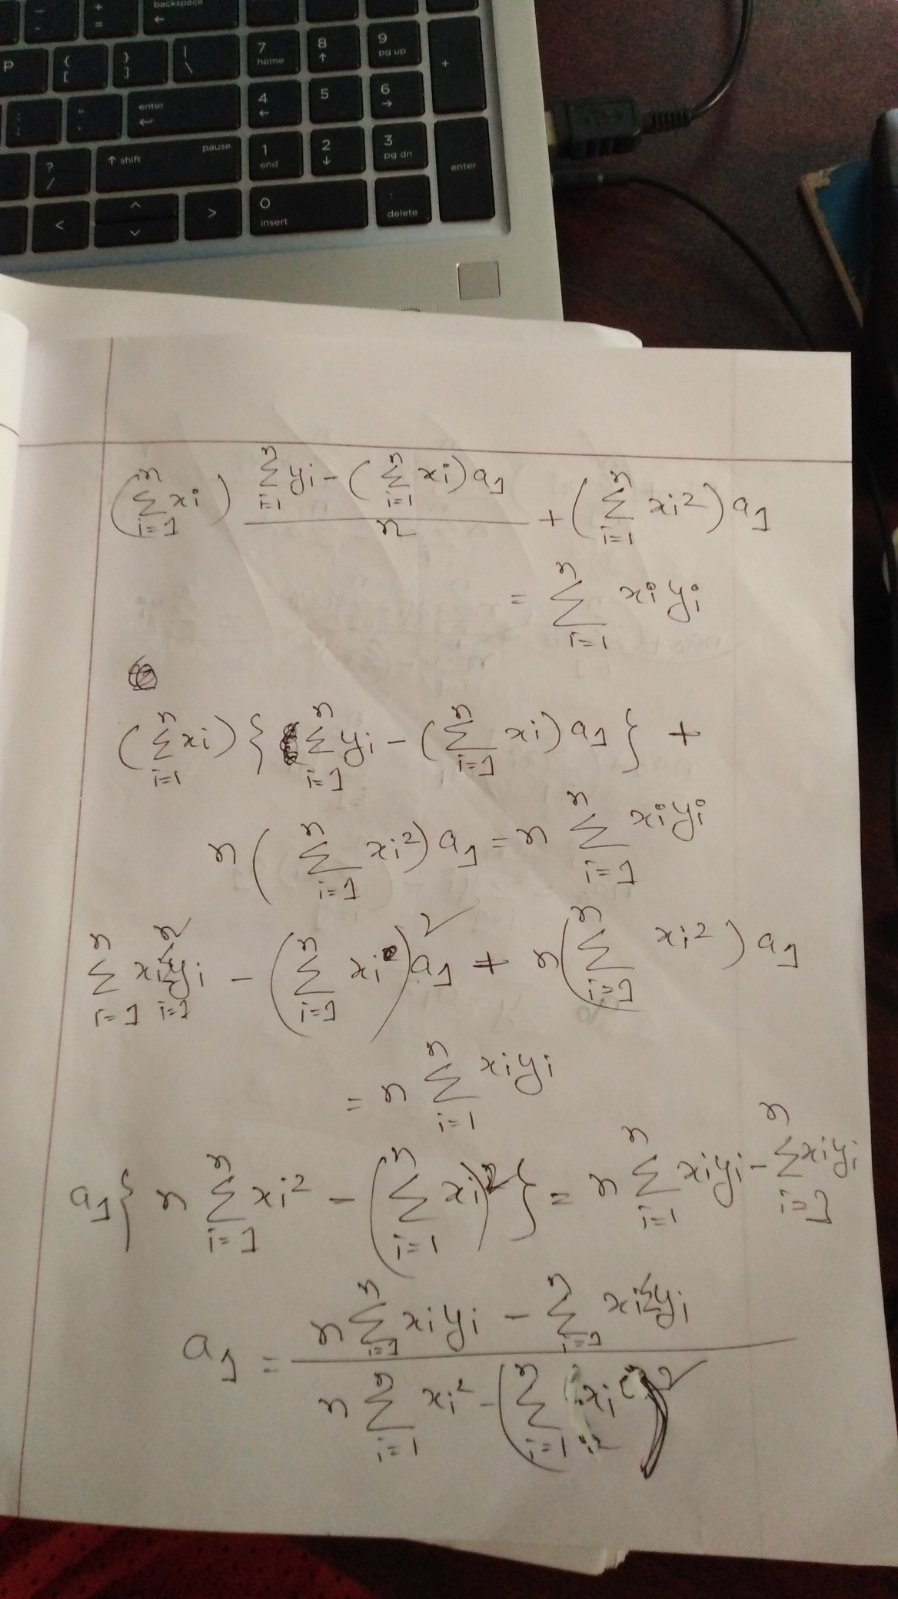 backspace
P { [ } ] | \ 7 home 8 ↑ 9 pg up +
: ; " ' enter ← 4 ← 5 6 →
? / ↑ shift pause 1 end 2 ↓ 3 pg dn enter
< ^ v > 0 insert . delete
(∑_{i=1}^{n} xi) (∑_{i=1}^{n} yi - (∑_{i=1}^{n} xi) a1) / n + (∑_{i=1}^{n} xi²) a1
= ∑_{i=1}^{n} xi yi
(∑_{i=1}^{n} xi) { ∑_{i=1}^{n} yi - (∑_{i=1}^{n} xi) a1 } +
n (∑_{i=1}^{n} xi²) a1 = n ∑_{i=1}^{n} xi yi
∑_{i=1}^{n} xi ∑_{i=1}^{n} yi - (∑_{i=1}^{n} xi)² a1 + n (∑_{i=1}^{n} xi²) a1
= n ∑_{i=1}^{n} xi yi
a1 { n ∑_{i=1}^{n} xi² - (∑_{i=1}^{n} xi)² } = n ∑_{i=1}^{n} xi yi - ∑_{i=1}^{n} xi yi
a1 = (n ∑_{i=1}^{n} xi yi - ∑_{i=1}^{n} xi ∑ yi) / (n ∑_{i=1}^{n} xi² - (∑_{i=1}^{n} xi)²)